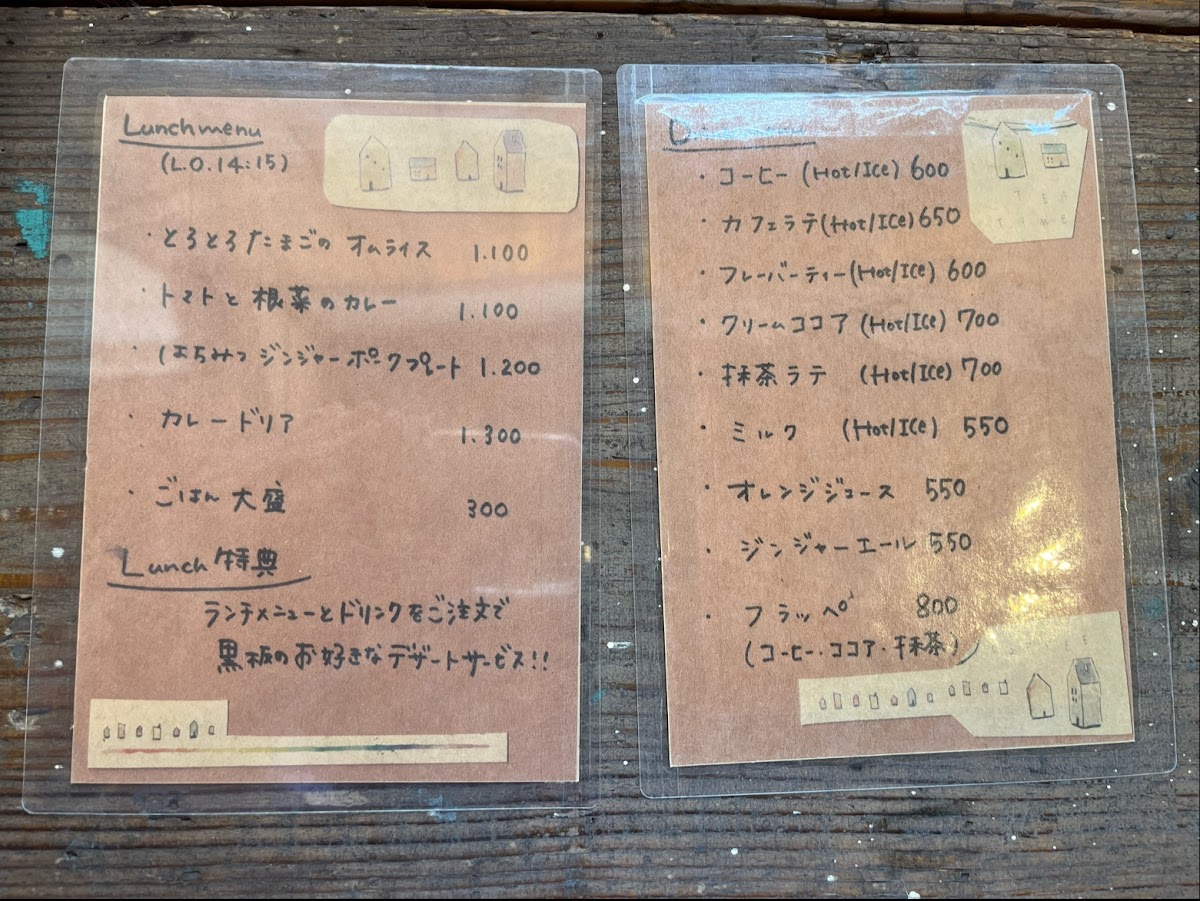 Lunch menu
(L.O.14:15)
・とろとろたまごの オムライス 1.100
・トマトと根菜のカレー 1.100
・はちみつジンジャーポークプレート 1.200
・カレードリア 1.300
・ごはん大盛 300
Lunch特典
ランチメニューとドリンクをご注文で
黒板のお好きなデザートサービス!!
・コーヒー (Hot/Ice) 600
・カフェラテ(Hot/Ice) 650
・フレーバーティー(Hot/Ice) 600
・クリームココア (Hot/Ice) 700
・抹茶ラテ (Hot/Ice) 700
・ミルク (Hot/Ice) 550
・オレンジジュース 550
・ジンジャーエール 550
・フラッペ 800
(コーヒー・ココア・抹茶)
TEA
TIME